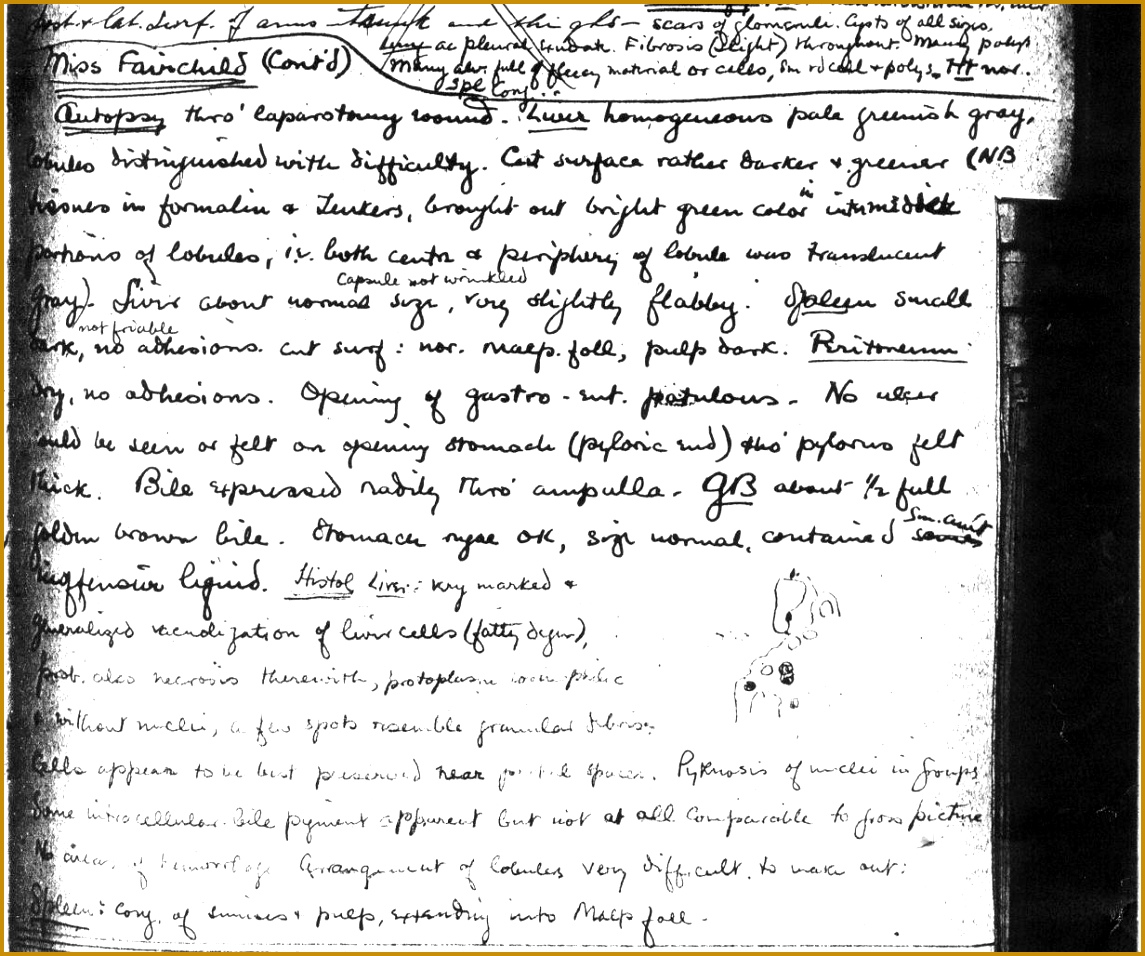 & lat. surf. of arms trunk and thighs – scars of glomeruli. Cysts of all sizes,
ac pleural exudate. Fibrosis (slight) throughout. Many polys
Miss Fairchild (Cont'd) Many alv. full of material or cells, sm rd cell & polys. Ht nor.
Spl cong...
Autopsy thro' laparotomy wound. Liver homogeneous pale greenish gray,
lobules distinguished with difficulty. Cut surface rather darker & greener (NB
tissues in formalin & Zenkers, brought out bright green color in intermediate
portions of lobules, i.e. both center & periphery of lobule was translucent
Capsule not wrinkled
gray). Liver about normal size, very slightly flabby. Spleen small
not friable
dark, no adhesions. cut surf: nor. Malp. foll, pulp dark. Peritoneum
dry, no adhesions. Opening of gastro-ent. patulous. No ulcer
could be seen or felt on opening stomach (pyloric end) tho' pylorus felt
thick. Bile expressed readily thro' ampulla. GB about 1/2 full
Sm. amt
golden brown bile. Stomach rugae OK, size normal, contained
inoffensive liquid. Histol Liver: very marked &
generalized vacuolization of liver cells (fatty degen),
prob. also necrosis therewith, protoplasm
& without nuclei, a few spots resemble granular debris.
Cells appear to be best preserved near portal spaces. Pyknosis of nuclei in groups.
Some intracellular bile pigment apparent but not at all comparable to gross picture
No areas of hemorrhage Arrangement of lobules very difficult to make out:
Spleen: cong. of sinuses & pulp, extending into Malp foll.